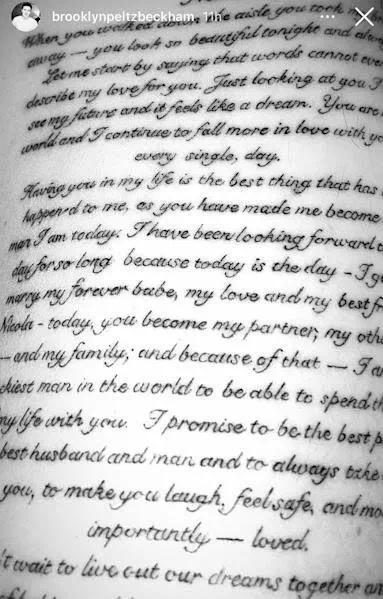 brooklynpeltzbeckham 11h
When you walked down the aisle you took
away — you look so beautiful tonight and
Let me start by saying that words cannot
describe my love for you. Just looking at you I
see my future and it feels like a dream. You are
world and I continue to fall more in love with
every single, day.
Having you in my life is the best thing that has
happen'd to me, as you have made me become
man I am today. I have been looking forward
day for so long because today is the day - I
marry my forever babe, my love and my best
Nicola - today, you become my partner, my
— and my family; and because of that — I
man in the world to be able to spend
my life with you. I promise to be the best
best husband and man and to always take
you, to make you laugh, feel safe, and
importantly — loved.
't wait to live out our dreams together